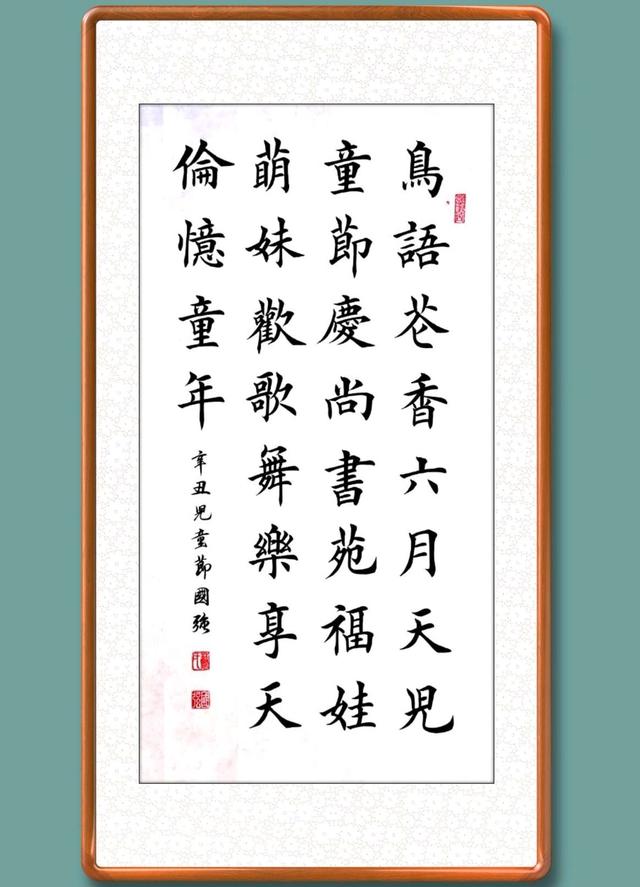 鳥語花香六月天兒
童節慶尚書苑福娃
萌妹歡歌舞樂享天
倫憶童年
辛丑兒童節國強